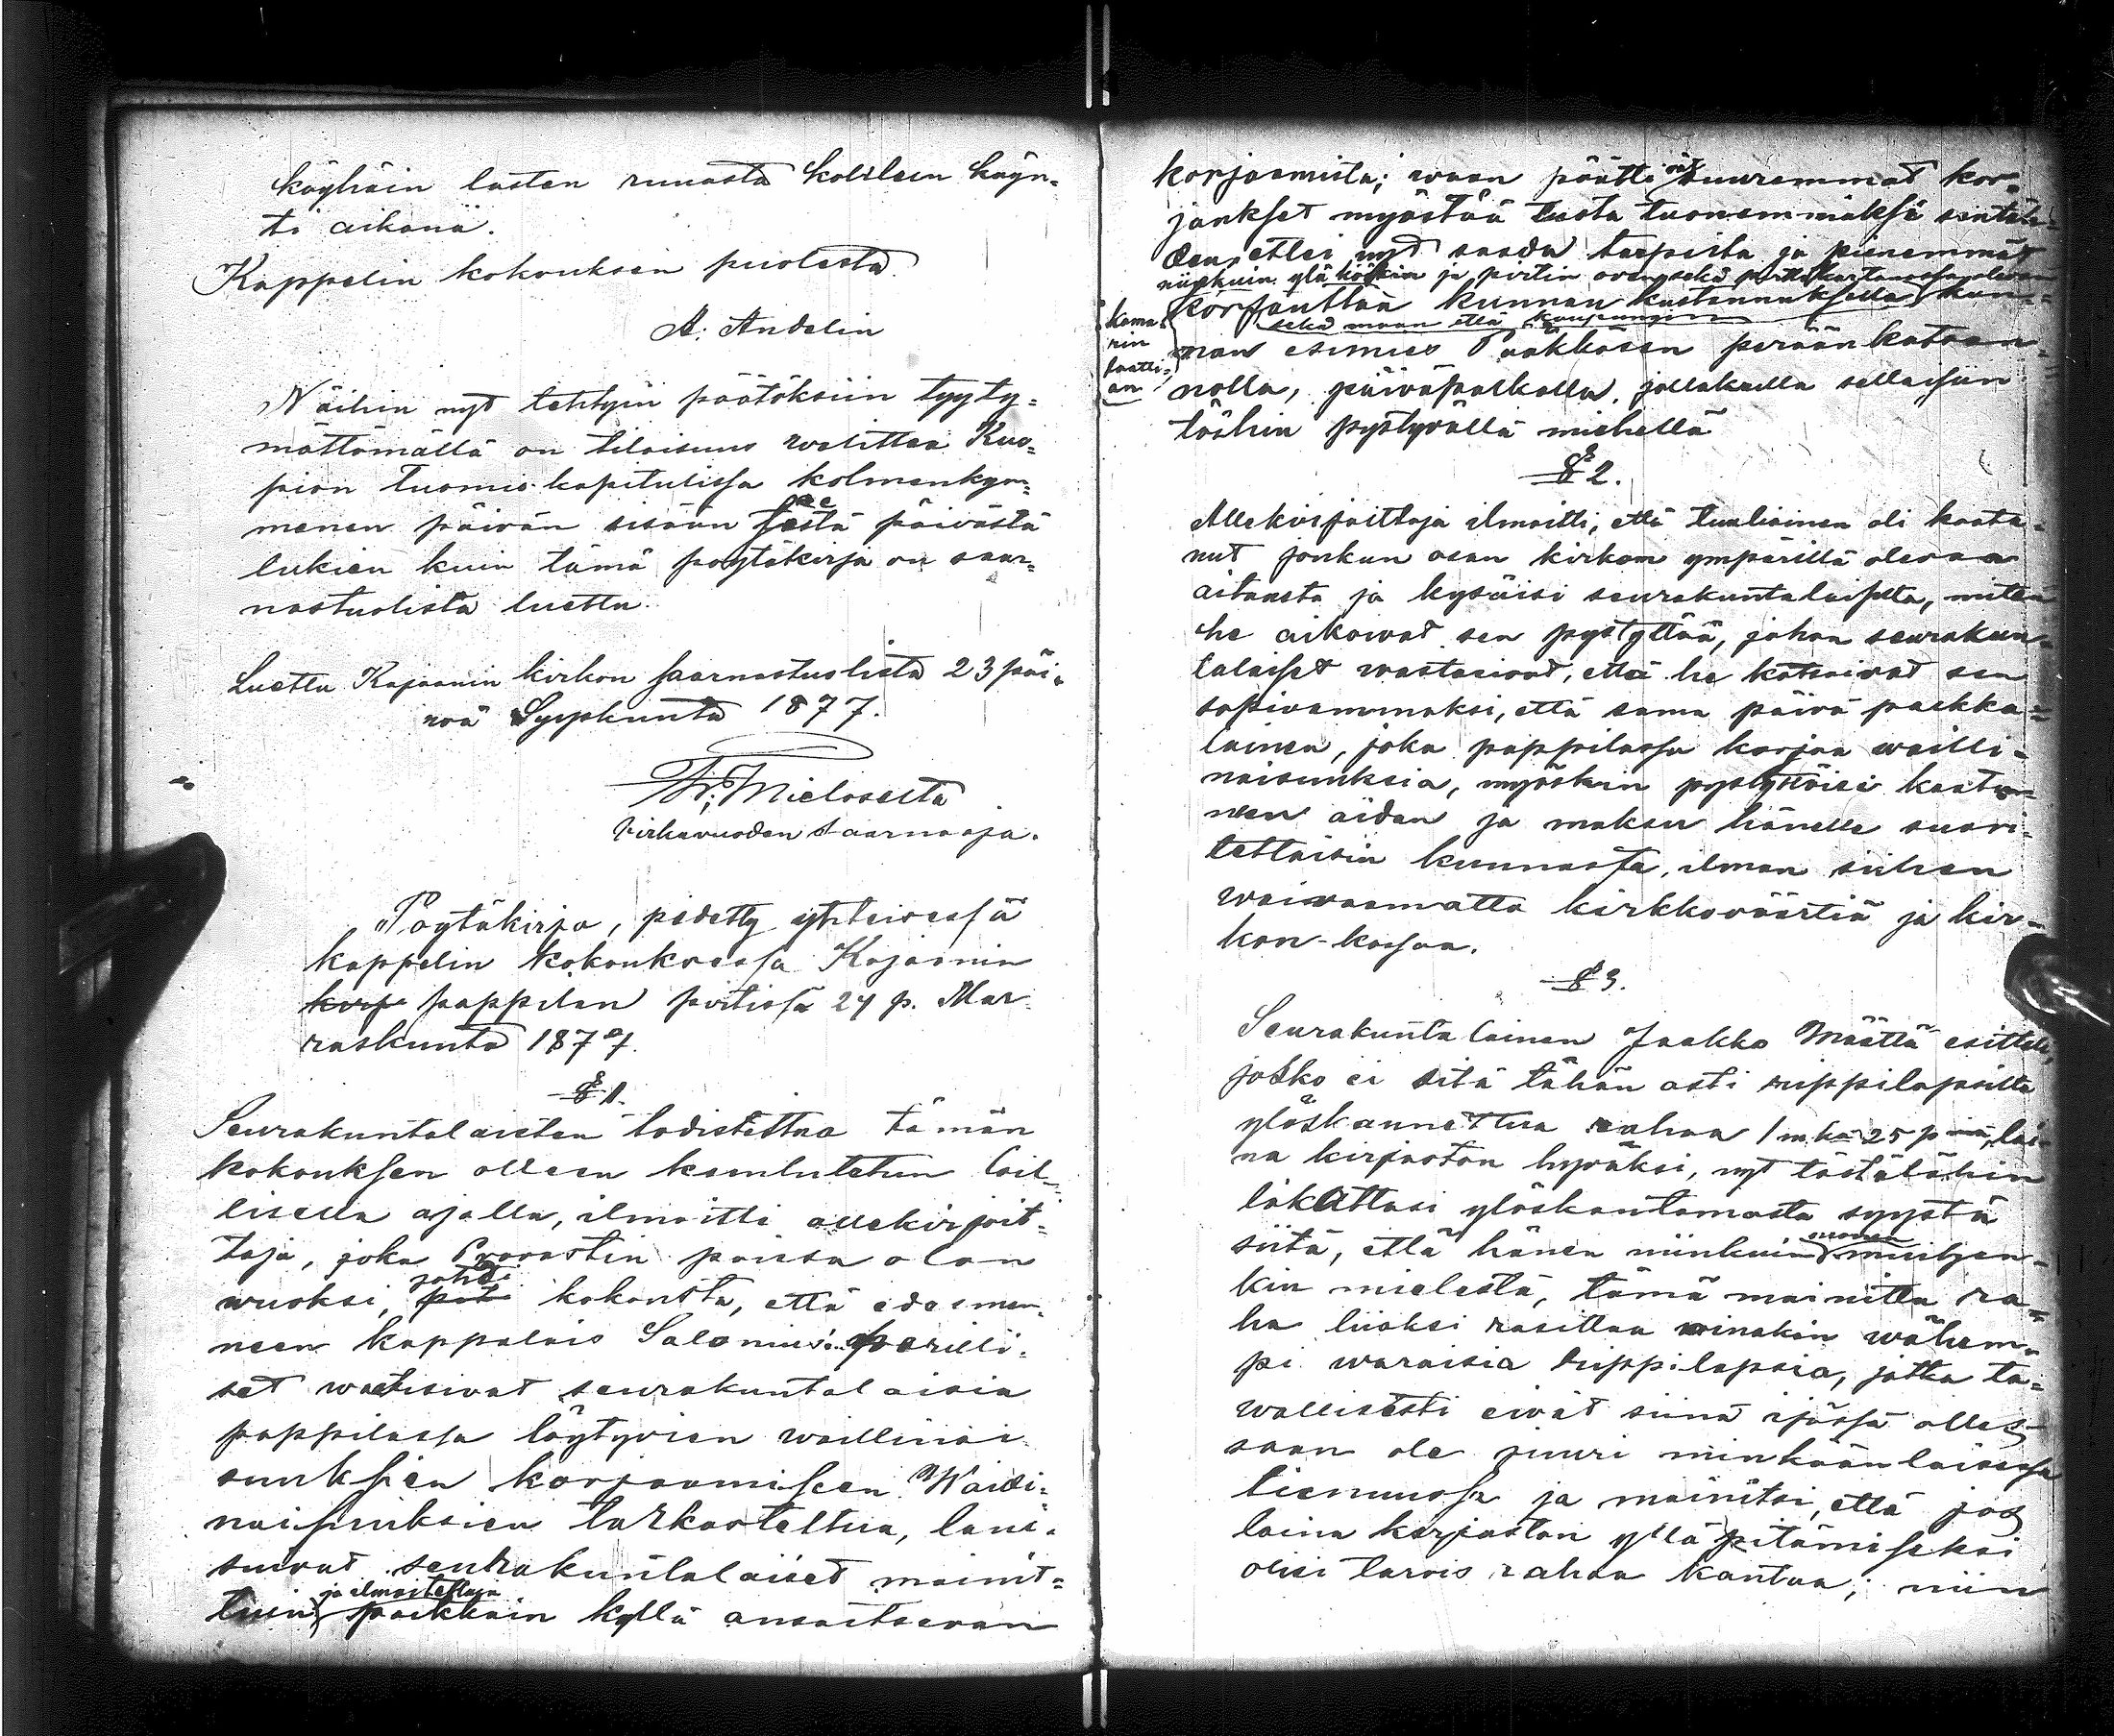 köyhäin lasten ruuasta koulun käyn-
ti aikana.
Kappelin kokouksen puolesta
A. Andelin
Näihin nyt tehtyin päätöksiin tyyty-
mättömällä on tilaisuus walittaa Kuo-
pion Tuomiokapitulissa kolmenkym-
menen päivän sisään siitä päivästä
lukien kuin tämä pöytäkirja on saar-
nastuolista luettu.
Luettu Kajaanin kirkon saarnastuolista 23 päi-
vä Syyskuuta 1877.
Virkavuoden Saarnaaja.
Pöytäkirja, pidetty yhteisessä
kappelin kokouksessa Kajaanin
pappilan pirtissä 24 p. Mar-
raskuuta 1877.
§ 1.
Seurakuntalaisten todistettua tämän
kokouksen olleen kuulutetun lail-
lisella ajalla, ilmoitti allekirjoit-
taja, joka Provastin poissa olon
wuoksi, johti kokousta, että edesmen-
neen kappalais perilli-
set waatisivat seurakuntalaisia
pappilassa löytyvien waillinai-
suuksien korjaamiseen. Waili-
naisuuksien tarkasteltua, lau-
suivat seurakuntalaiset mainit-
ja ilmoitettuja
tuin paikkain kyllä ansaitsevan
korjaamista; waan päätti suuremmat kor-
jaukset myöstää tuota tuonemmaksi sentäh-
den, ettei nyt saada tarpeita ja pienemmät
niinkuin ja pirtin oven sekä
korjauttaa kunnan kustannuksella kun-
kama-
rin
laatti-
an
sekä muun että kaupungin
nan esimies Pääkkösen peräänkatsan-
nolla, päiväpalkalla, jollakulla sellaisiin
töihin pystyvällä miehellä
§ 2.
Allekirjoittaja ilmoitti, että tuuliainen oli kaata-
nut jonkun osan kirkon ympärillä olevaa
aitausta ja kysäisi seurakuntalaisilta, miten
he aikowat sen pystyttää, johon seurakun-
talaiset wastasivat, että he katsoivat sen
sopivammaksi, että sama päivä palkka-
lainen, joka pappilassa korjaa wailli-
naisuuksia, myöskin pystyttäisi kaatu-
neen aidan ja maksu hänelle suori-
tettaisiin kunnasta, ilman siihen
waivaamatta kirkkowäärtiä ja kir-
kon-kassaa.
§ 3.
Seurakuntalainen Jaakko Määttä esitteli,
josko ei sitä tähän asti rippilapsilta
ylöskannettua rahaa 1 mka 25 piä, lai-
na kirjaston hyväksi, nyt tästälähin
lakattasi ylöskantamasta syystä
siitä, että hänen niinkuin monen muitten-
kin mielestä, tämä mainittu ra-
ha liiaksi rasittaa wähem-
pi waraisia rippilapsia, jotka ta-
wallisesti eivät siinä ijässä olles-
saan ole juuri minkäänlaisessa
tienuussa ja mainitsi, että jos
laina kirjaston ylläpitämiseksi
olisi tarvis rahaa kantaa; niin